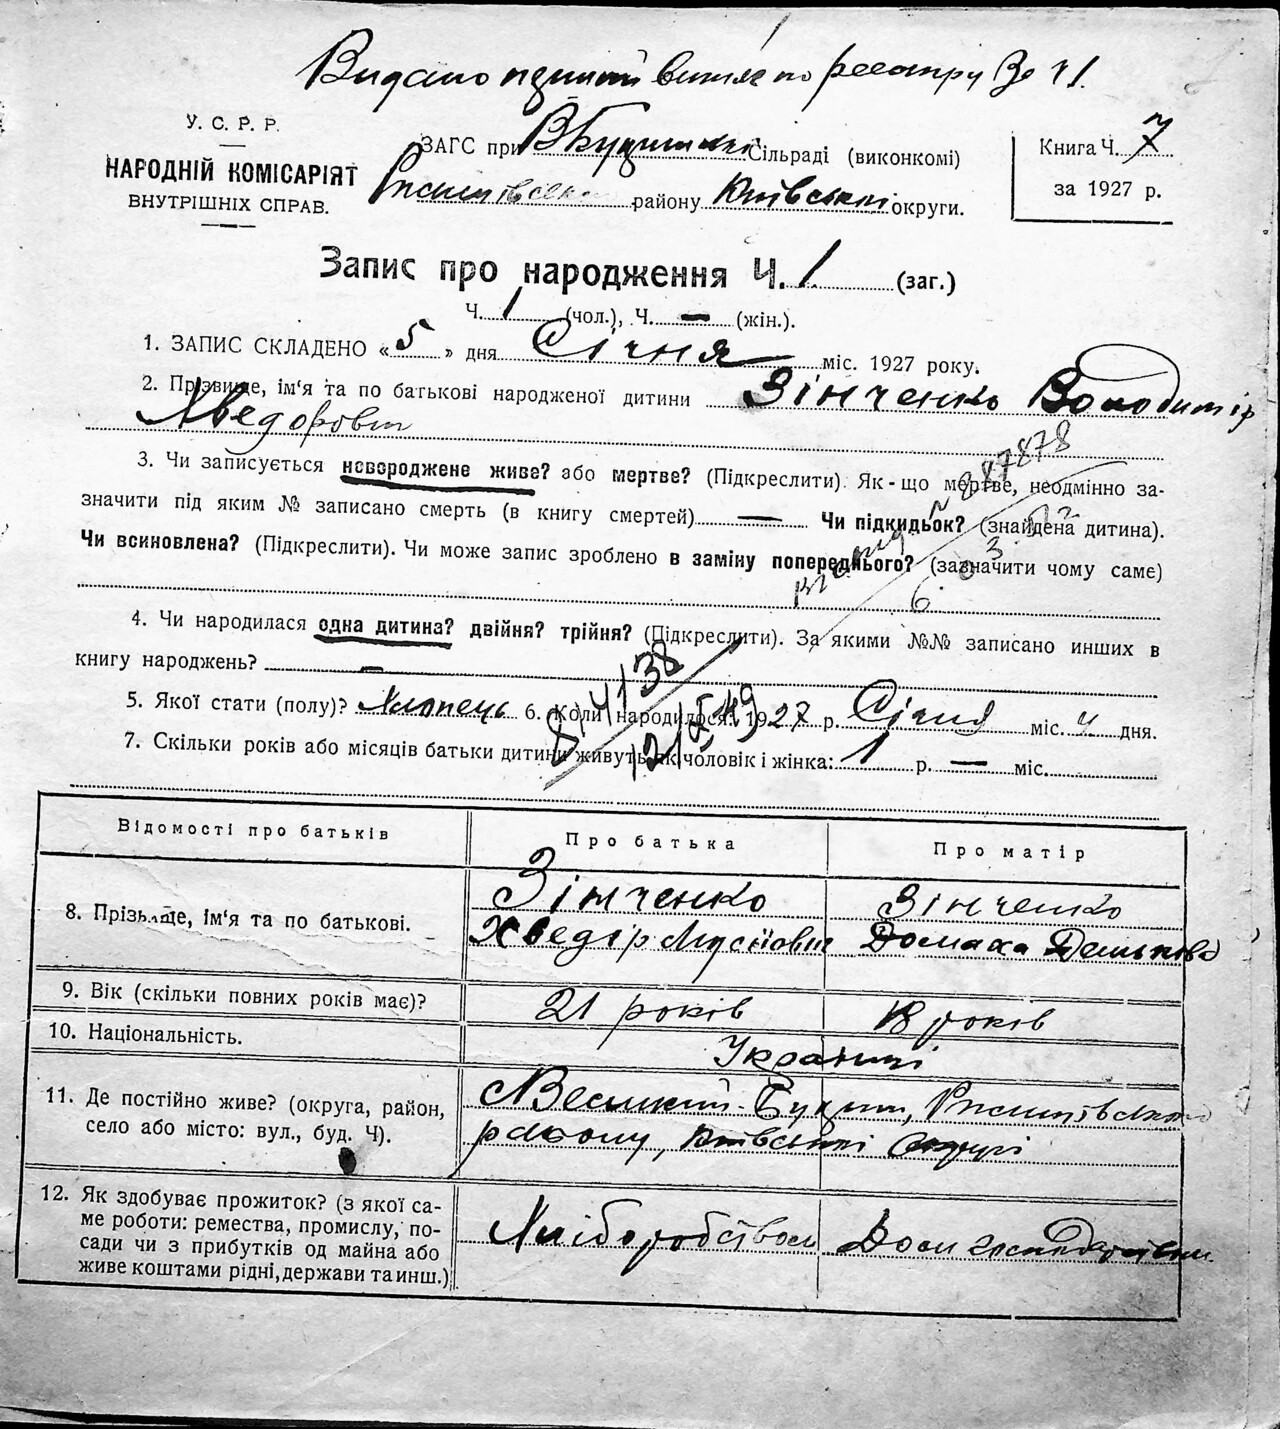 Видано повний витяг по реєстру За ч 1.
У. С. Р. Р.
НАРОДНІЙ КОМІСАРІЯТ
ВНУТРІШНІХ СПРАВ.
ЗАГС при В Букринській Сільраді (виконкомі)
Ржищівського району Київської округи.
Книга Ч. 7
за 1927 р.
Запис про народження Ч. 1 (заг.)
Ч. 1 (чол.), Ч. — (жін.).
1. ЗАПИС СКЛАДЕНО «5» дня Січня міс. 1927 року.
2. Прізвище, ім'я та по батькові народженої дитини Зінченко Володимір
Хведорович
3. Чи записується новороджене живе? або мертве? (Підкреслити). Як-що мертве, неодмінно за-
значити під яким № записано смерть (в книгу смертей) — Чи підкидьок? (знайдена дитина).
Чи всиновлена? (Підкреслити). Чи може запис зроблено в заміну попереднього? (зазначити чому саме)
887878
4. Чи народилася одна дитина? двійня? трійня? (Підкреслити). За якими №№ записано инших в
книгу народжень? —
5. Якої стати (полу)? Хлопець 6. Коли народилося? 1927 р. Січня міс. 4 дня.
7. Скільки років або місяців батьки дитини живуть як чоловік і жінка: 1 р. — міс.
Відомості про батьків
Про батька
Про матір
8. Прізвище, ім'я та по батькові.
Зінченко
Хведір Мусійович
Зінченко
Домаха Демьянівна
9. Вік (скільки повних років має)?
21 років
18 років
10. Національність.
Українці
11. Де постійно живе? (округа, район,
село або місто: вул., буд. Ч).
Великий-Букрин, Ржищівського
району, Київської округи
12. Як здобуває прожиток? (з якої са-
ме роботи: ремества, промислу, по-
сади чи з прибутків од майна або
живе коштами рідні, держави та инш.)
Хліборобством
Дом господарством